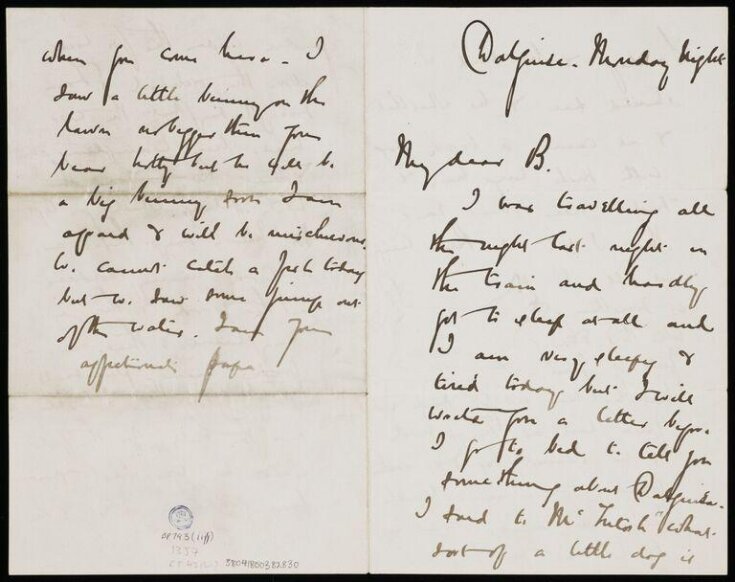 Dalguise. Monday Night
My dear B.
I was travelling all
the night last night in
the train and hardly
got to sleep at all and
I am very sleepy &
tired today but I will
write you a letter before
I go to bed to tell you
something about Dalguise.
I said to McIntosh "what
sort of a little dog is
when you come here. I
saw a little bunny on the
lawn no bigger than your
but he will be
a big bunny soon I am
afraid & will be mischievous.
We cannot catch a fish today
but we saw some jump out
of the water. I am your
affectionate papa